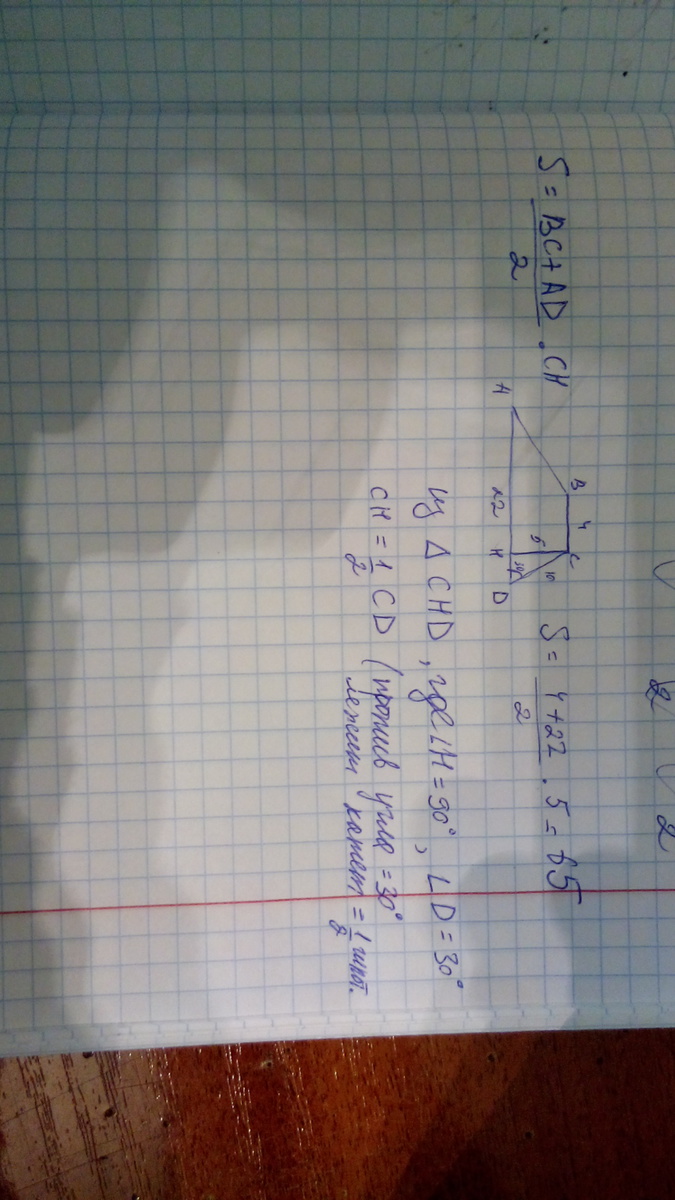 S = BC + AD / 2 · CH
A B C H D
4
22
5
10
30°
S = 4 + 22 / 2 · 5 = 65
Из Δ CHD, где ∠H = 90°, ∠D = 30°
CH = 1/2 CD (против угла = 30°
лежит катет = 1/2 гипот.
2 2